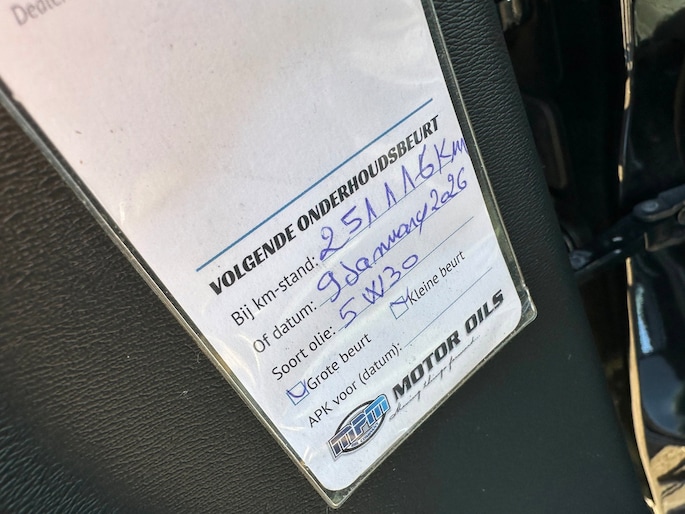 Dealer
VOLGENDE ONDERHOUDSBEURT
Bij km-stand: 251116 Km
Of datum: 9 January 2026
Soort olie: 5W30
Grote beurt Kleine beurt
APK voor (datum):
MPM MOTOR OILS